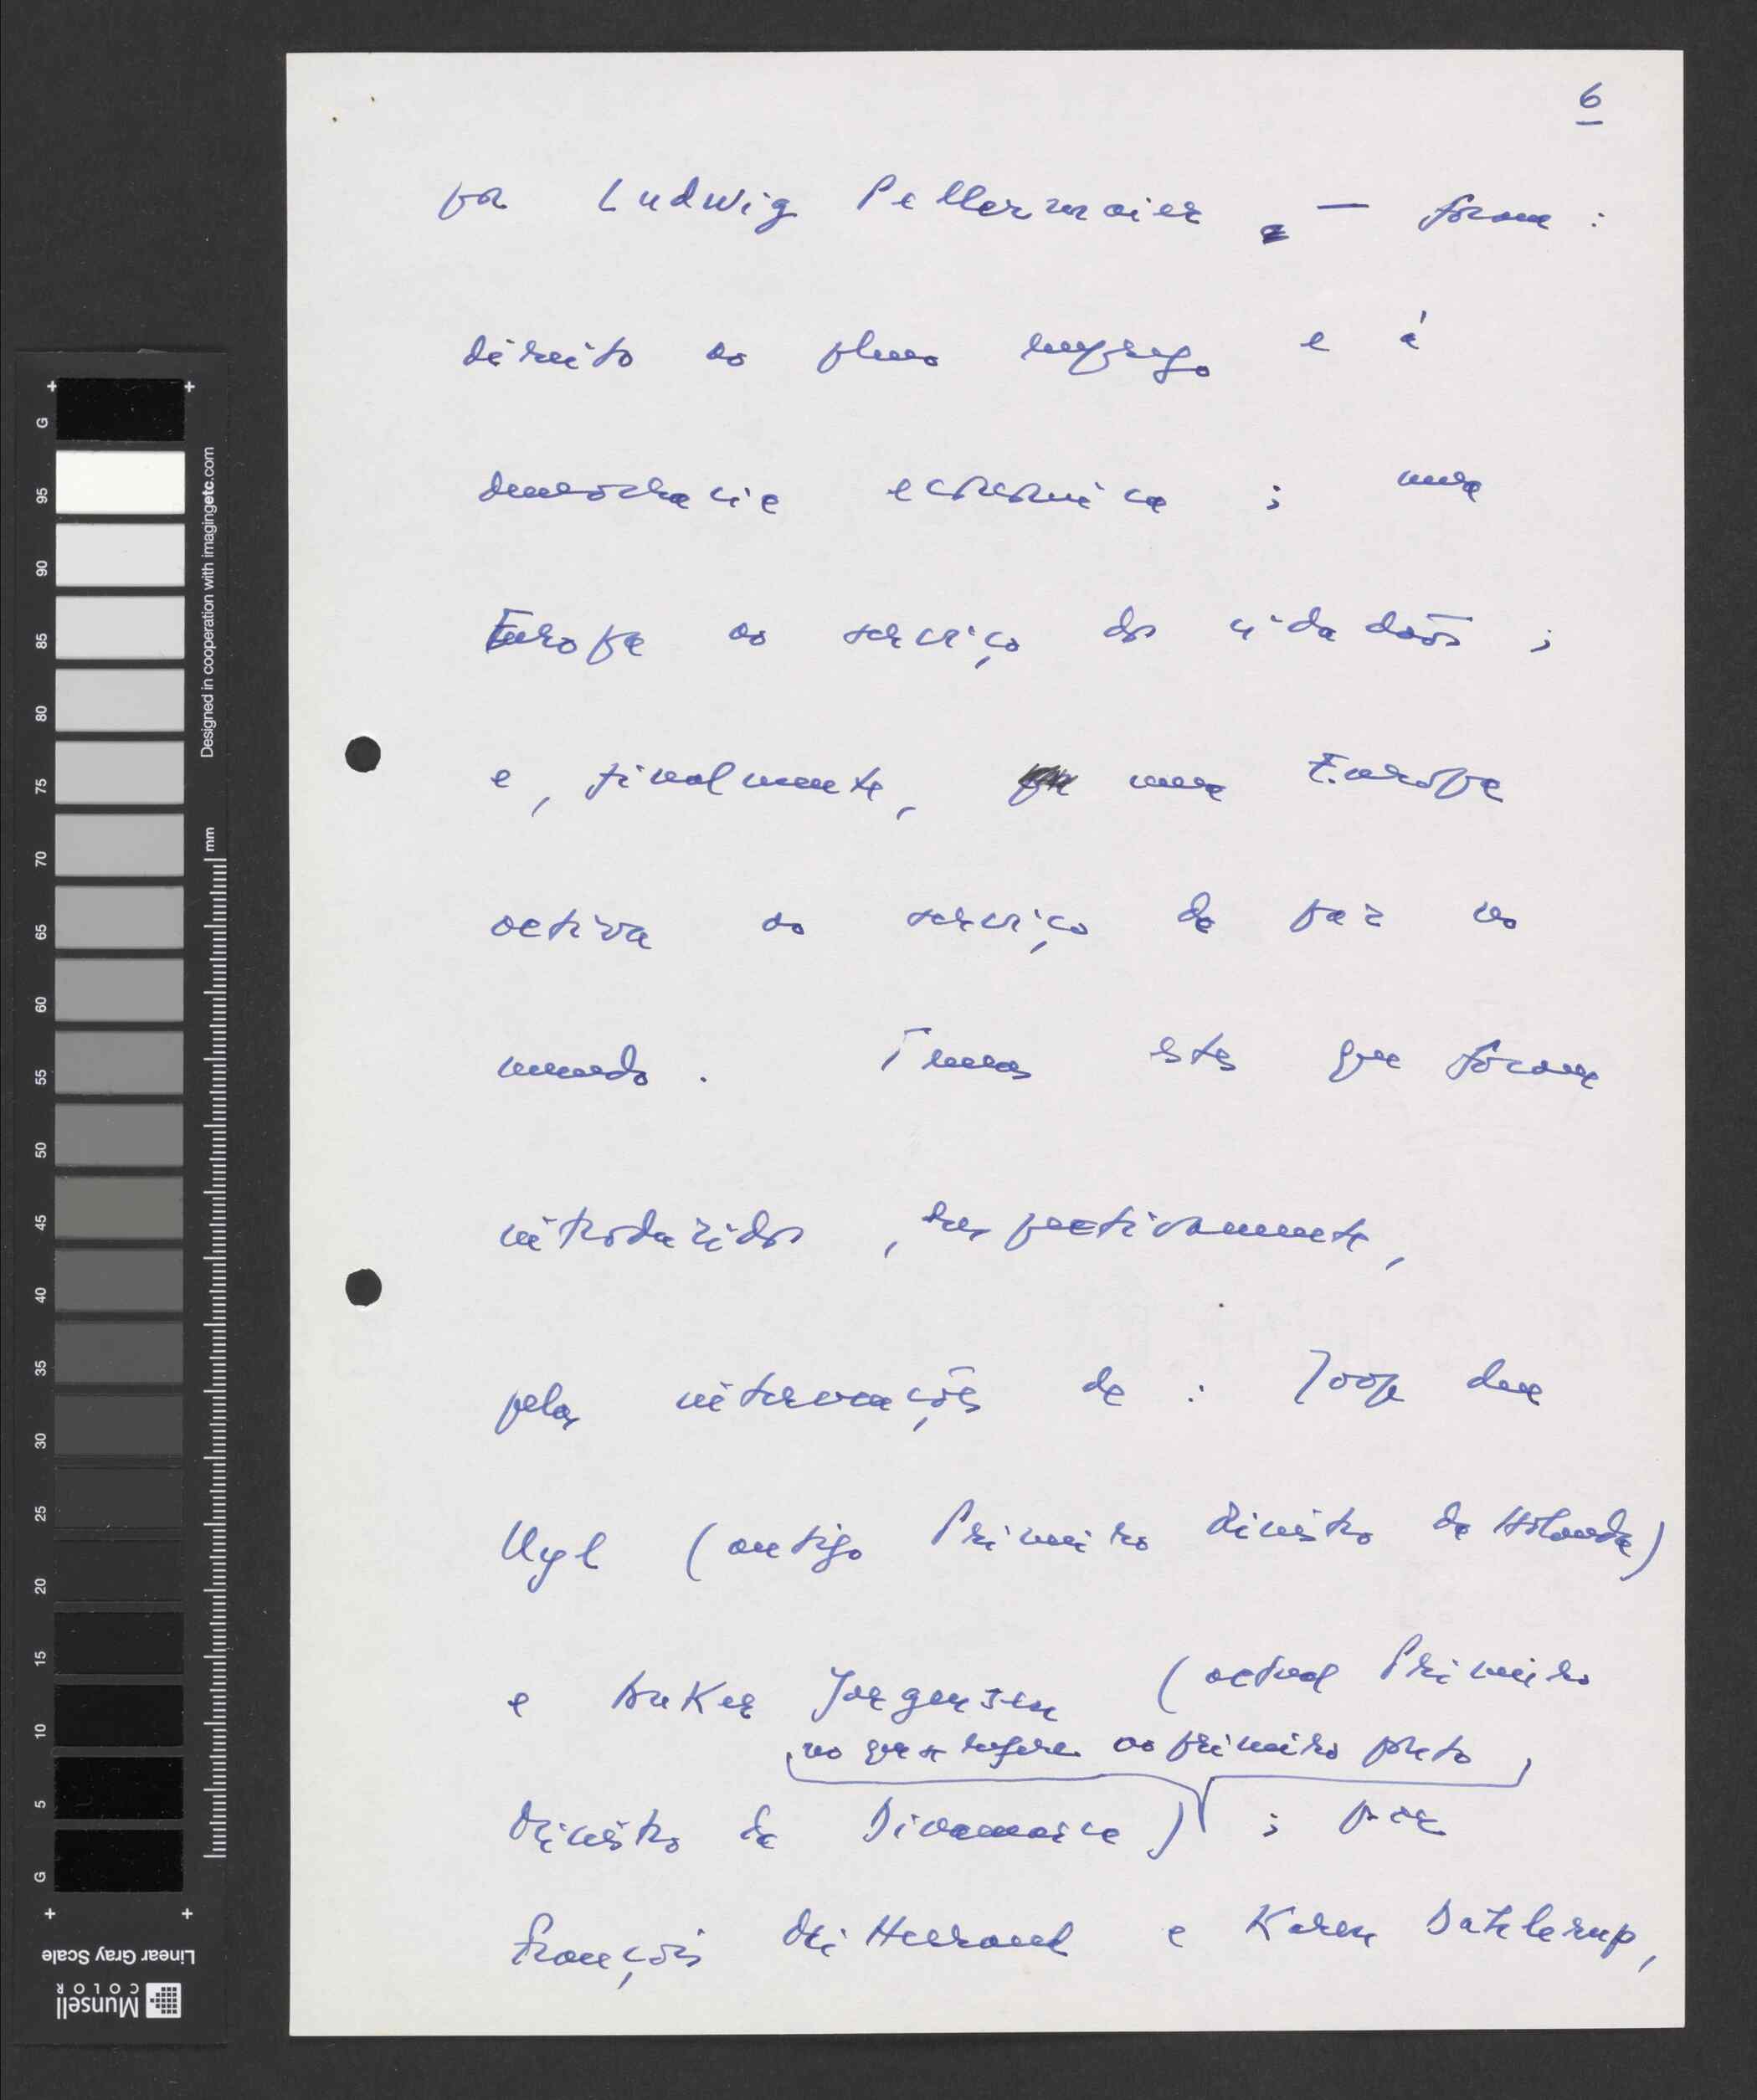 6
por Ludwig Fellermaier, — foram :
direito ao pleno emprego e à
democracia económica ; uma
Europa ao serviço dos cidadãos ;
e, finalmente, uma Europa
activa ao serviço da paz no
mundo . Temas estes que foram
introduzidos , respectivamente,
pelas intervenções de : Joop den
Uyl (antigo Primeiro Ministro da Holanda)
e Anker Jorgensen (actual Primeiro
, no que se refere ao primeiro ponto ,
Ministro da Dinamarca) ; por
François Mitterrand e Karen Dahlerup,
G
95
90
85
80
75
70
65
60
55
50
45
40
35
30
25
20
15
10
5
G
mm
Designed in cooperation with imagingetc.com
Linear Gray Scale
Munsell
COLOR